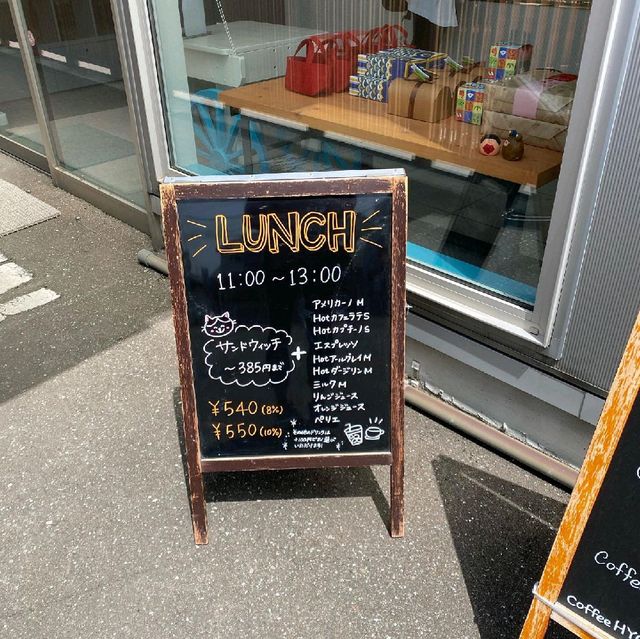 LUNCH
11:00～13:00
サンドウィッチ
～385円まで
+
アメリカーノ M
Hotカフェラテ S
Hotカプチーノ S
エスプレッソ
Hotアールグレイ M
Hotダージリン M
ミルク M
リンゴジュース
オレンジジュース
ペリエ
¥540(8%)
¥550(10%)
その他のドリンクは
+100円でお選び
いただけます!
Coffee
Coffee HY